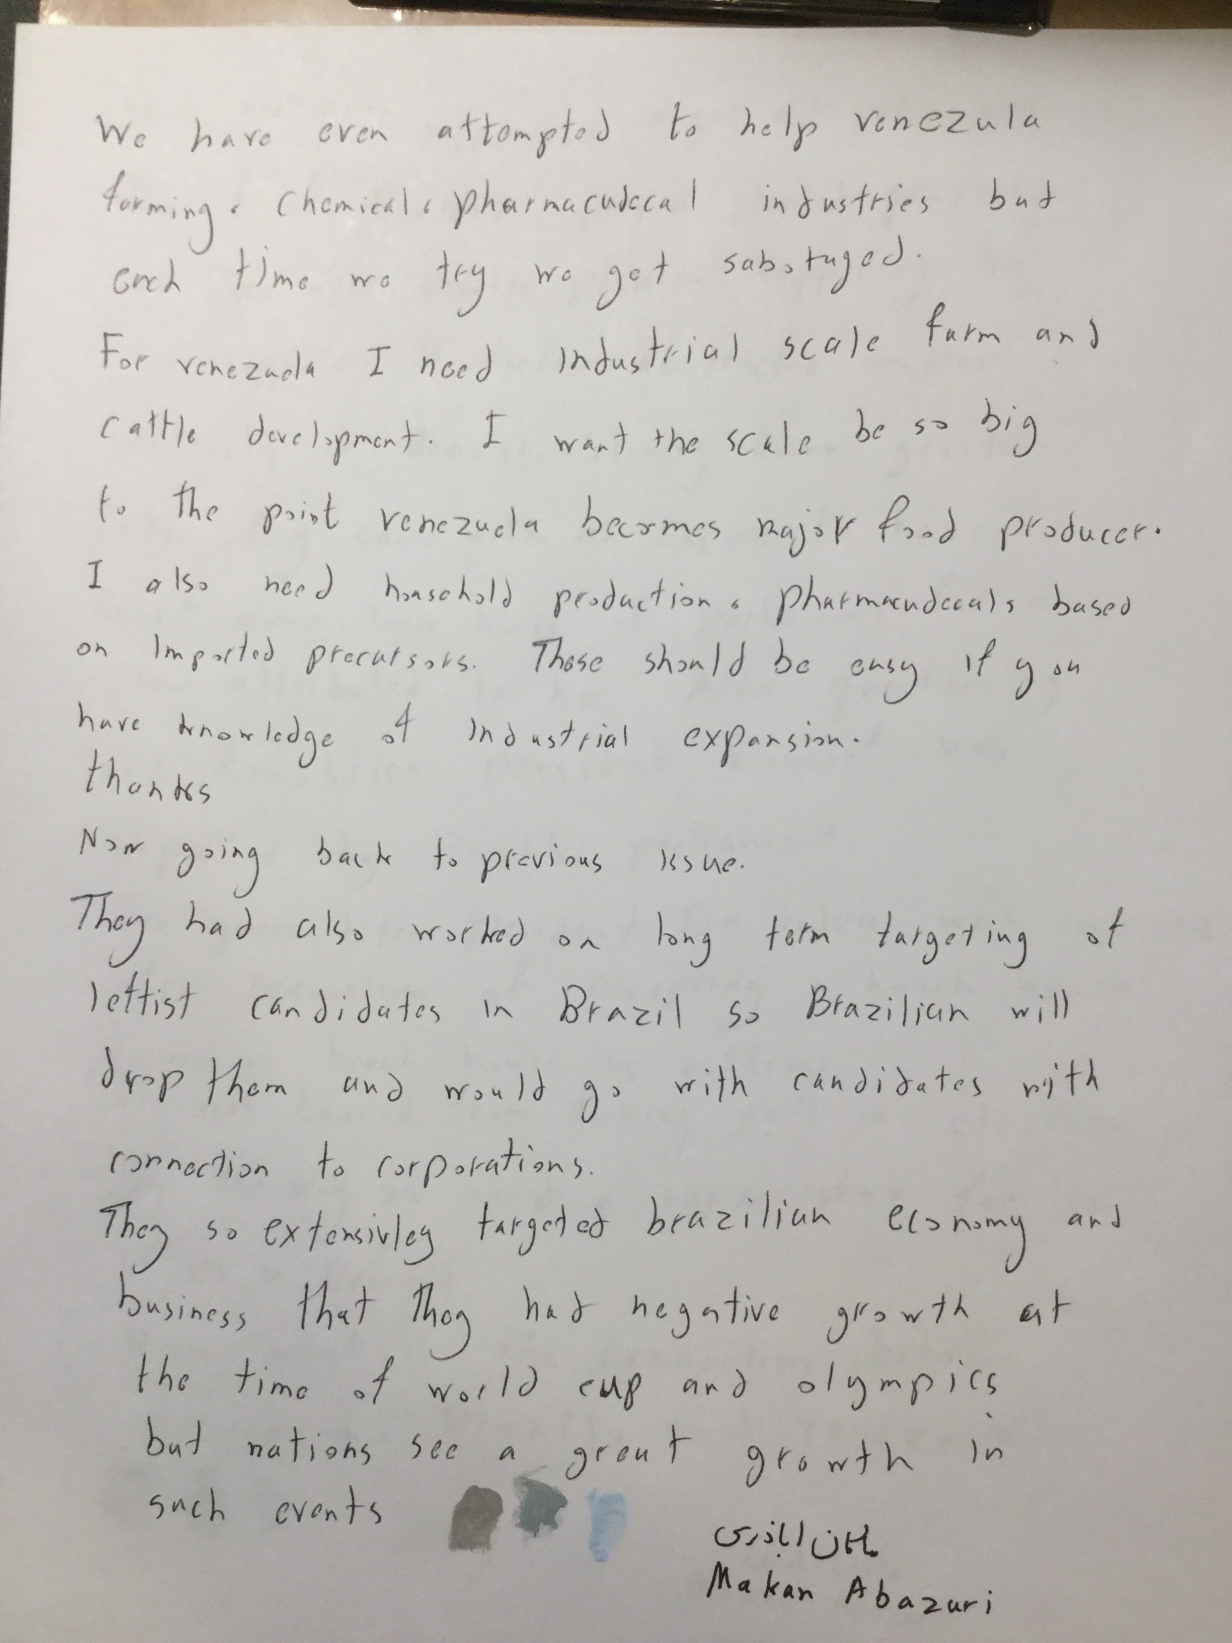 We have even attempted to help venezula
farming، chemical، pharmacudecal industries but
each time we try we get sabotaged.
For venezuela I need industrial scale farm and
cattle development. I want the scale be so big
to the point venezuela becomes major food producer.
I also need household production، pharmacudecals based
on imported precursors. These should be easy if you
have knowledge of industrial expansion.
thanks
Now going back to previous issue.
They had also worked on long term targeting of
leftist candidates in Brazil so Brazilian will
drop them and would go with candidates with
connection to corporations.
They so extensivley targeted brazilian economy and
business that they had negative growth at
the time of world cup and olympics
but nations see a great growth in
such events
ماکان اباذری
Makan Abazari